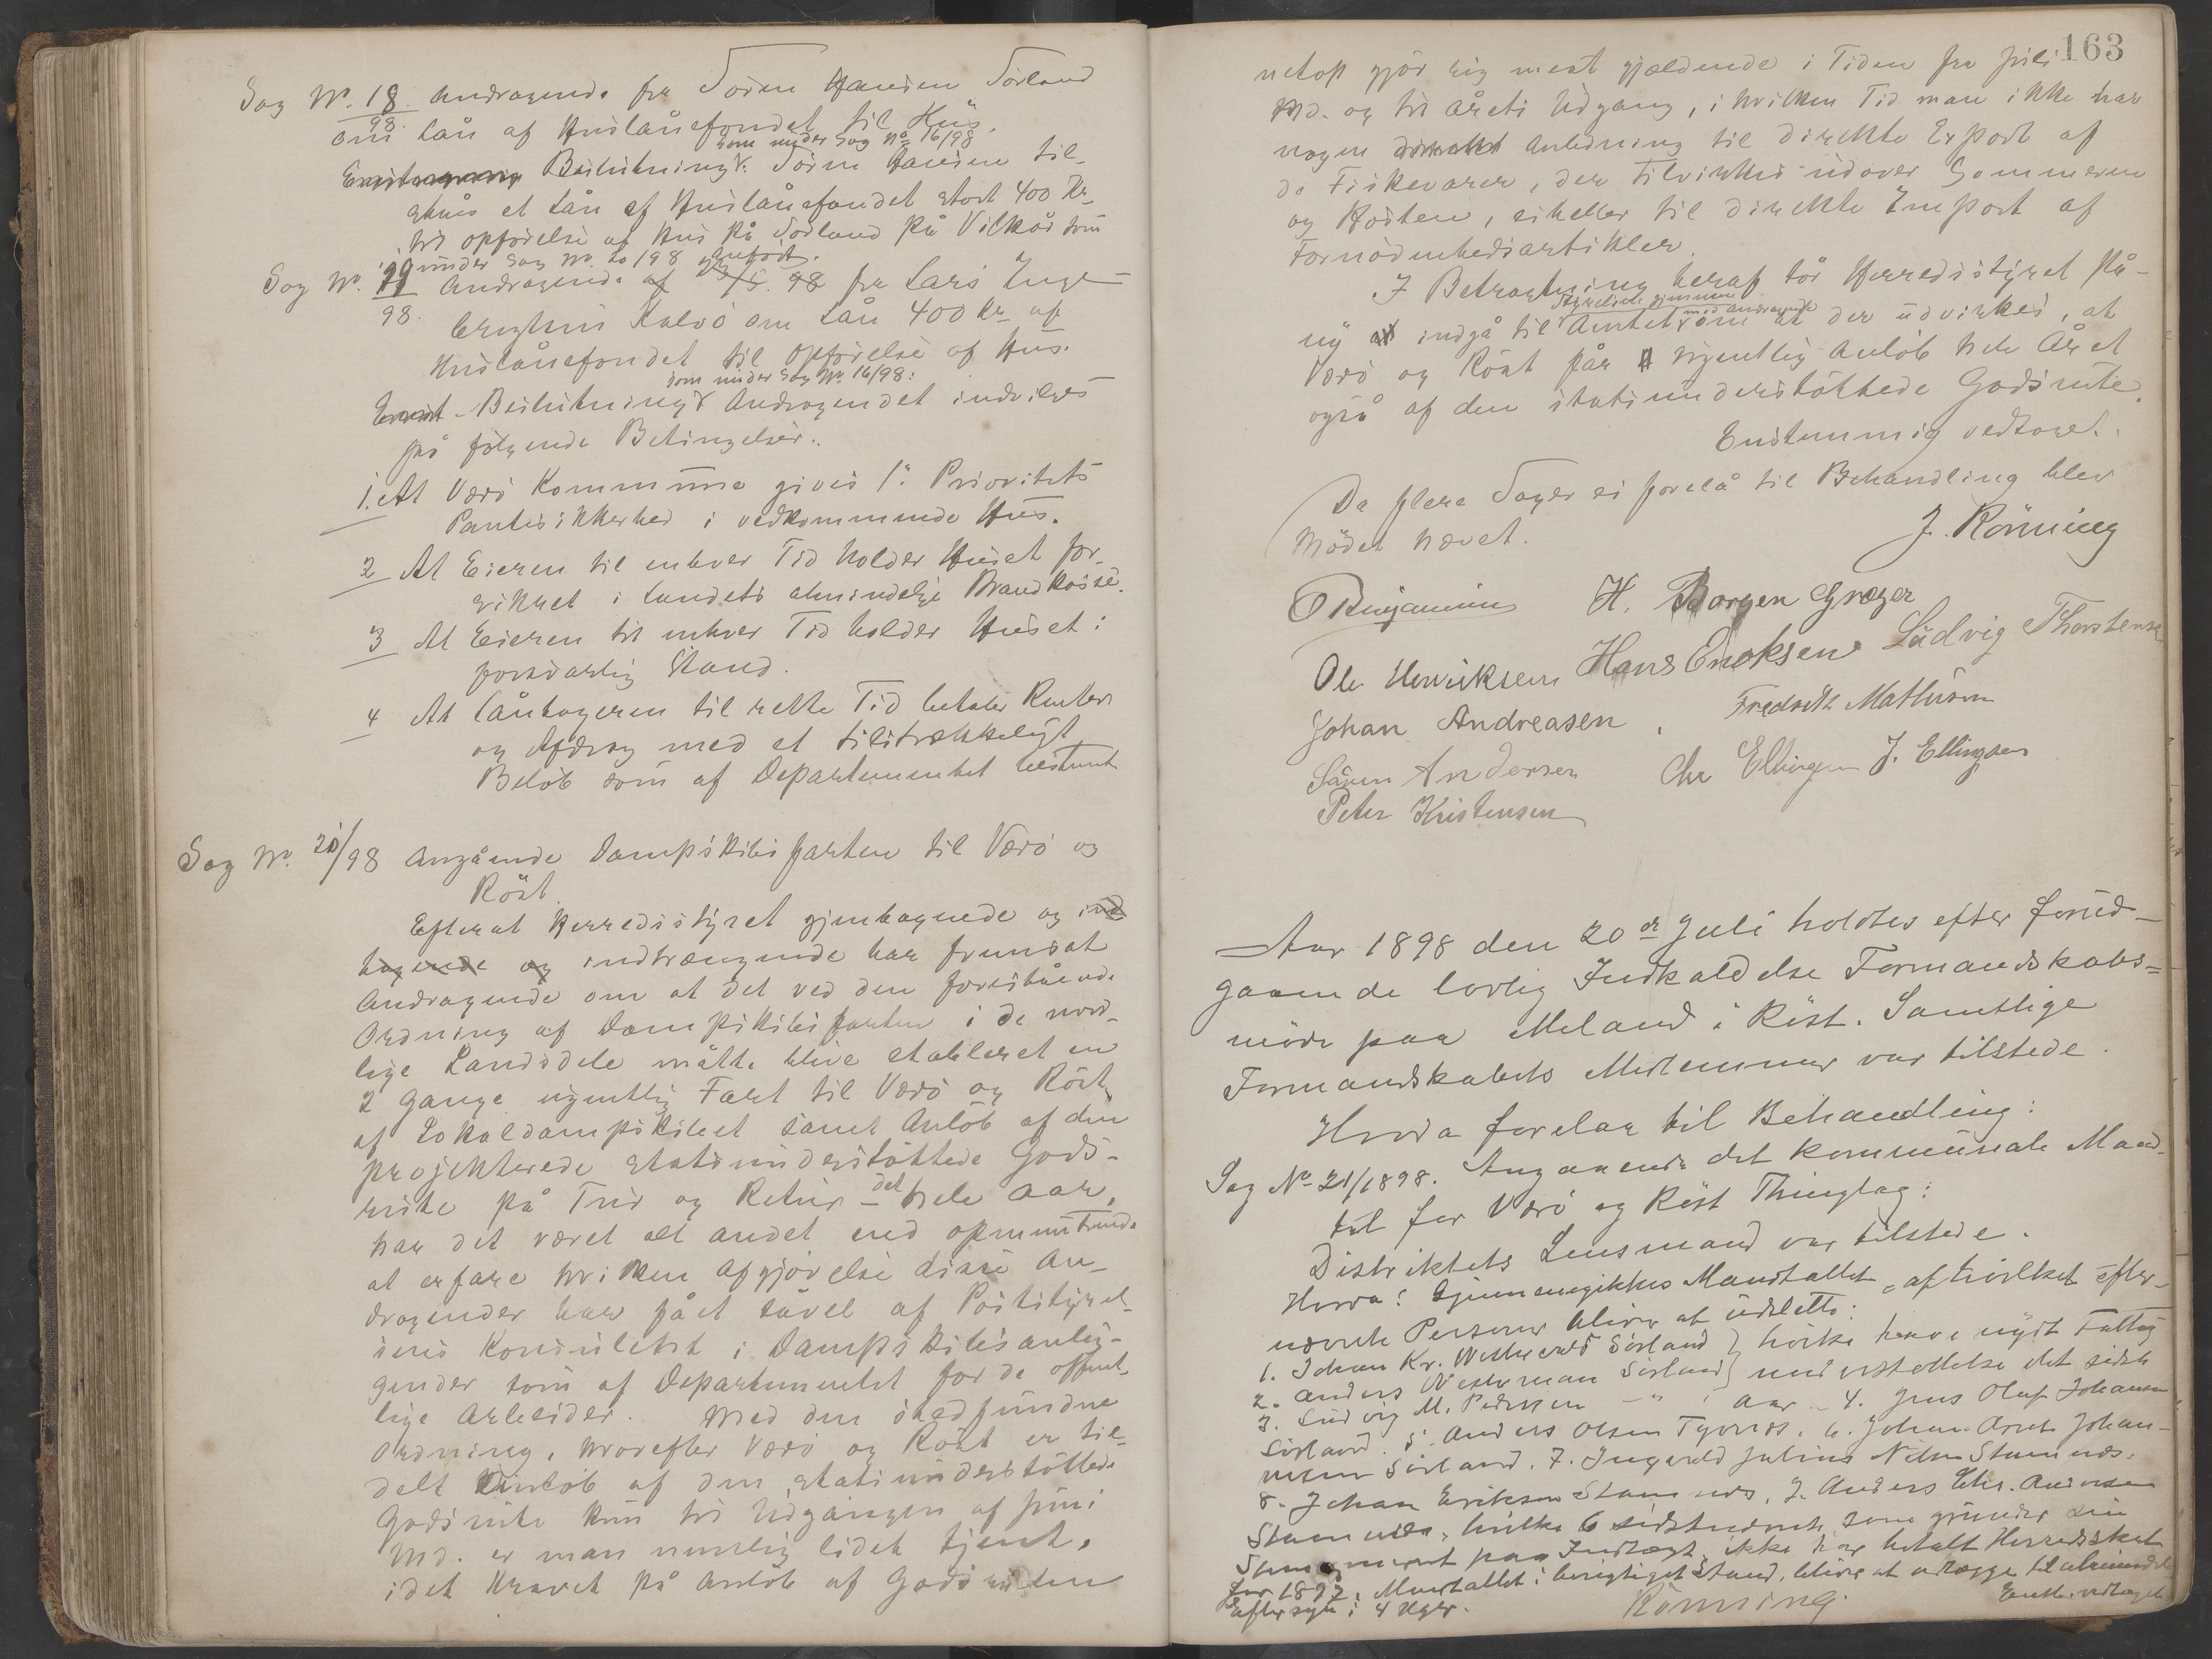 Sag No. 18/98. Andragende fra Sören Hansen Sörland
om Lån af Huslånefondet til Hus.
som under Sag No 16/98
Beslutning: Sören Hansen til-
ståes et Lån af Huslånefondet stort 400 Kr.
til Opförelse af Hus på Sörland på Vilkår som
under Sag No. 20/98 anfört.
Sag No. 19/98. Andragende af 23/5. 98 fra Lars Inge-
brigtsen Kalvö om Lån 400 Kr. af
Huslånefondet til Opförelse af Hus.
som under Sag No. 16/98:
Enst. Beslutning: Andragendet indvilges
på fölgende Betingelser:
1. At Værö Kommune gives 1ste Prioritets
Pantesikkerhed i vedkommende Hus.
2 At Eieren til enhver Tid holder Huset for-
sikret i Landets almindelige Brandkasse.
3 At Eieren til enhver Tid holder Huset i
forsvarlig Stand.
4 At Låntageren til rette Tid betaler Renter
og Afdrag med et tilstrækkeligt
Belöb som af Departementet bestemt
Sag No. 20/98 Angående Dampskibsfarten til Værö og
Röst.
Efterat Herredsstyret gjentagende og ind
tagende og indtrængende har fremsat
Andragende om at det ved den forestående
Ordning af Dampskibsfarten i de nord-
lige Landsdele måtte blive etableret en
2 Gange ugentlig Fart til Værö og Röst
af Lokaldampskibet samt Anlöb af den
projekterede statsunderstöttede Gods-
rute på Tur og Retur - det hele Aar,
har det været alt andet end opmuntrende
at erfare hvilken Afgjörelse disse An-
dragender har fået såvel af Poststyrel-
sens Konsulent i Dampskibsanlig-
gender som af Departementet for de offent-
lige Arbeider. Med den stedfundne
Ordning, hvorefter Værö og Röst er til-
delt Anlöb af den statsunderstöttede
Godsrute kun til Udgangen af Juni
Md. er man nemlig lidet tjent,
idet Kravet på Anlöb af Godsruten
163
netop gjör sig mest gjældende i Tiden fra Juli
Md. og til årets Udgang, i hvilken Tid man ikke har
nogen Anledning til direkte Export af
de Fiskevarer, der tilvirkes udover Sommeren
og Hösten, eiheller til direkte Import af
Fornödenhedsartikler.
I Betragtning heraf tör Herredsstyret på-
ny indgå til Styrelsen gjennem Amtet med Andragende om at der udvirkes, at
Værö og Röst får ugentlig Anlöb hele Året
også af den statsunderstöttede Godsrute.
Enstemmig vedtaget.
Da flere Sager ei forelå til Behandling blev
Mödet hævet.
J. Rönning
O Benjaminsen H. Borgen Græger
Ole Henriksen Hans Enoksen Ludvig Thorstensen
Johan Andreasen. Fredrik Mathisen
Sören Andersen Chr Ellingsen J. Ellingsen
Peter Kristensen
Aar 1898 den 20de Juli holdtes efter forud-
gaaende lovlig Indkaldelse Formandskabs-
möde paa Meland i Röst. Samtlige
Formandskabets Medlemmer var tilstede.
Hvorda forelaa til Behandling:
Sag No 21/1898. Angaaende det kommunale Mand-
tal for Værö og Röst Thinglag:
Distriktets Lensmand var tilstede.
Hvorda: Gjennemgikkes Mandtallet, af hvilket efter-
nævnte Personer bliver at udslette:
1. Johan Kr. Sörland } hvilke have nydt Fattig
2. Anders Sörland } understöttelse det sidste
3. Ludvig M. Pedersen - " Aar. - 4. Jens Oluf Johansen
Sörland. 5. Anders Olsen Tyvnes. 6. Johan Arnt Johan-
nesen Sörland. 7. Ingvald Julius Nilsen Stamnæs.
8. Johan Eriksen Stamnæs, 9. Anders Chr. Andersen
Stamnæs, hvilke 6 sidstnævnte, som grunder sin
Stemmeret paa Indtægt, ikke har betalt Herredsskat
for 1897. Mandtallet i berigtiget Stand, bliver at udlægge til almindeligt
Eftersyn i 4 Uger. Rönning. Enst. vedtaget